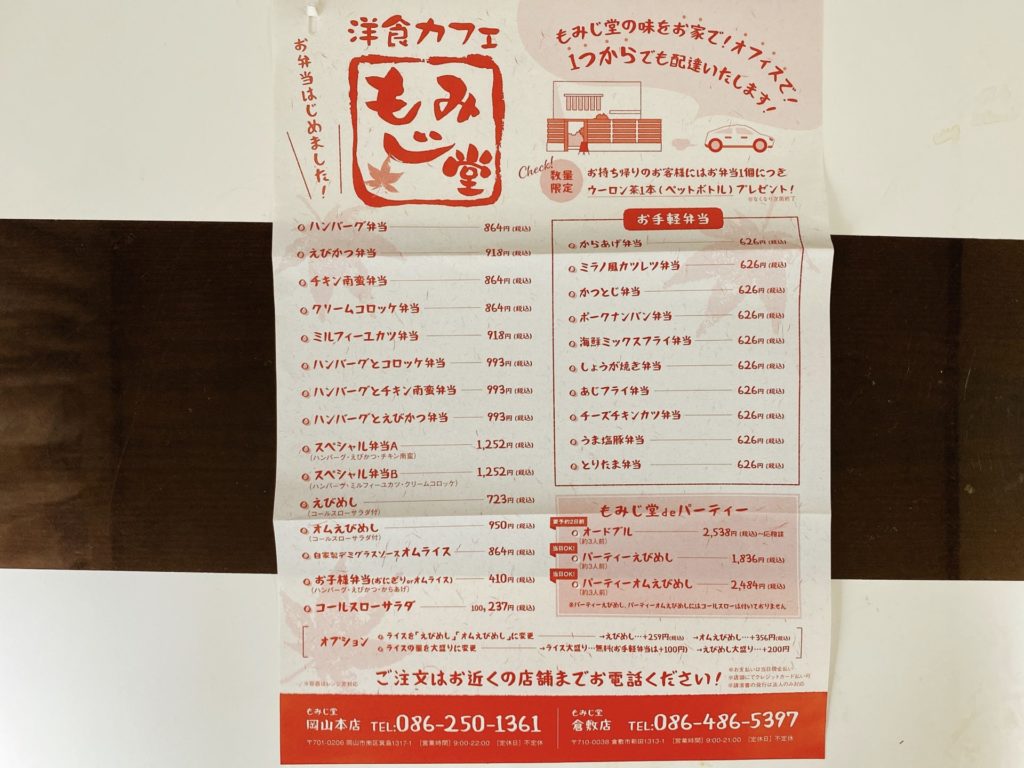 お弁当はじめました!
洋食カフェ
もみじ堂
もみじ堂の味をお家で!オフィスで!
1つからでも配達いたします!
Check!
数量限定
お持ち帰りのお客様にはお弁当1個につき
ウーロン茶1本(ペットボトル)プレゼント!
※なくなり次第終了
ハンバーグ弁当 864円(税込)
えびかつ弁当 918円(税込)
チキン南蛮弁当 864円(税込)
クリームコロッケ弁当 864円(税込)
ミルフィーユカツ弁当 918円(税込)
ハンバーグとコロッケ弁当 993円(税込)
ハンバーグとチキン南蛮弁当 993円(税込)
ハンバーグとえびかつ弁当 993円(税込)
スペシャル弁当A 1,252円(税込)
(ハンバーグ・えびかつ・チキン南蛮)
スペシャル弁当B 1,252円(税込)
(ハンバーグ・ミルフィーユカツ・クリームコロッケ)
えびめし 723円(税込)
(コールスローサラダ付)
オムえびめし 950円(税込)
(コールスローサラダ付)
自家製デミグラスソースオムライス 864円(税込)
お子様弁当(おにぎりorオムライス) 410円(税込)
(ハンバーグ・えびかつ・からあげ)
コールスローサラダ 100g 237円(税込)
お手軽弁当
からあげ弁当 626円(税込)
ミラノ風カツレツ弁当 626円(税込)
かつとじ弁当 626円(税込)
ポークナンバン弁当 626円(税込)
海鮮ミックスフライ弁当 626円(税込)
しょうが焼き弁当 626円(税込)
あじフライ弁当 626円(税込)
チーズチキンカツ弁当 626円(税込)
うま塩豚弁当 626円(税込)
とりたま弁当 626円(税込)
もみじ堂deパーティー
要予約2日前
オードブル 2,538円(税込)〜応相談
(約3人前)
当日OK!
パーティーえびめし 1,836円(税込)
(約3人前)
当日OK!
パーティーオムえびめし 2,484円(税込)
(約3人前)
※パーティーえびめし、パーティーオムえびめしにはコールスローは付いておりません
オプション
ライスを「えびめし」「オムえびめし」に変更 →えびめし…+259円(税込) →オムえびめし…+356円(税込)
ライスの量を大盛りに変更 →ライス大盛り…無料(お手軽弁当は+100円) →えびめし大盛り…+200円
※容器はレンジ非対応
ご注文はお近くの店舗までお電話ください!
※お支払いは当日現金払い
※店頭にてクレジットカード払い可
※請求書の発行は法人のみ対応
もみじ堂
岡山本店 TEL:086-250-1361
〒701-0206 岡山市南区箕島1317-1 [営業時間] 9:00-22:00 [定休日] 不定休
もみじ堂
倉敷店 TEL:086-486-5397
〒710-0038 倉敷市新田1313-1 [営業時間] 9:00-21:00 [定休日] 不定休